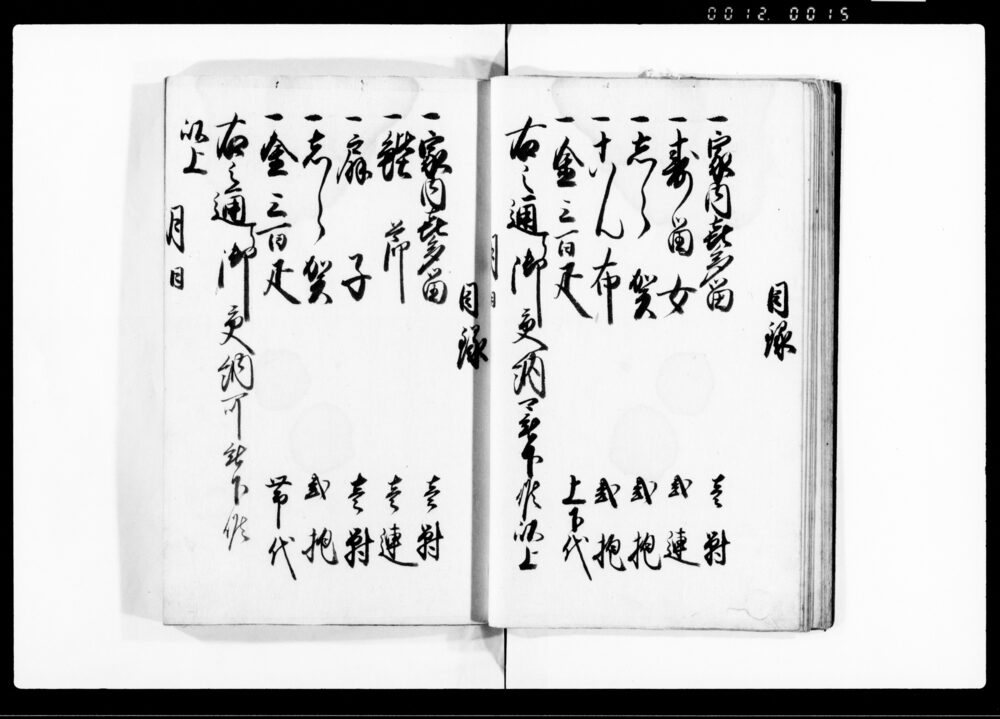 0012. 0015
目録
一家内喜多留 壱対
一寿留女 弐連
一志らが 弐抱
一こんぶ 弐抱
一金三百疋 上下代
右之通御受納可被下候以上
月日
目録
一家内喜多留 壱対
一 節 壱連
一扇子 壱対
一志らが 弐抱
一金三百疋 帯代
右之通御受納可被下候
以上
月日